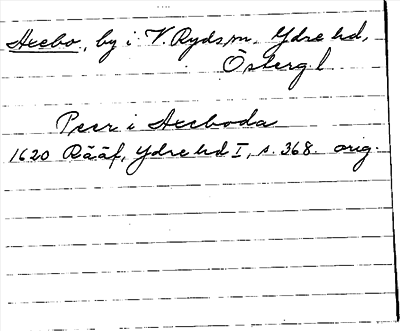 Axebo, by i V. Ryds sn. Ydre hd,
Östergl.
Peer i Axeboda
1620 Rääf, Ydre hd I, s. 368. orig.